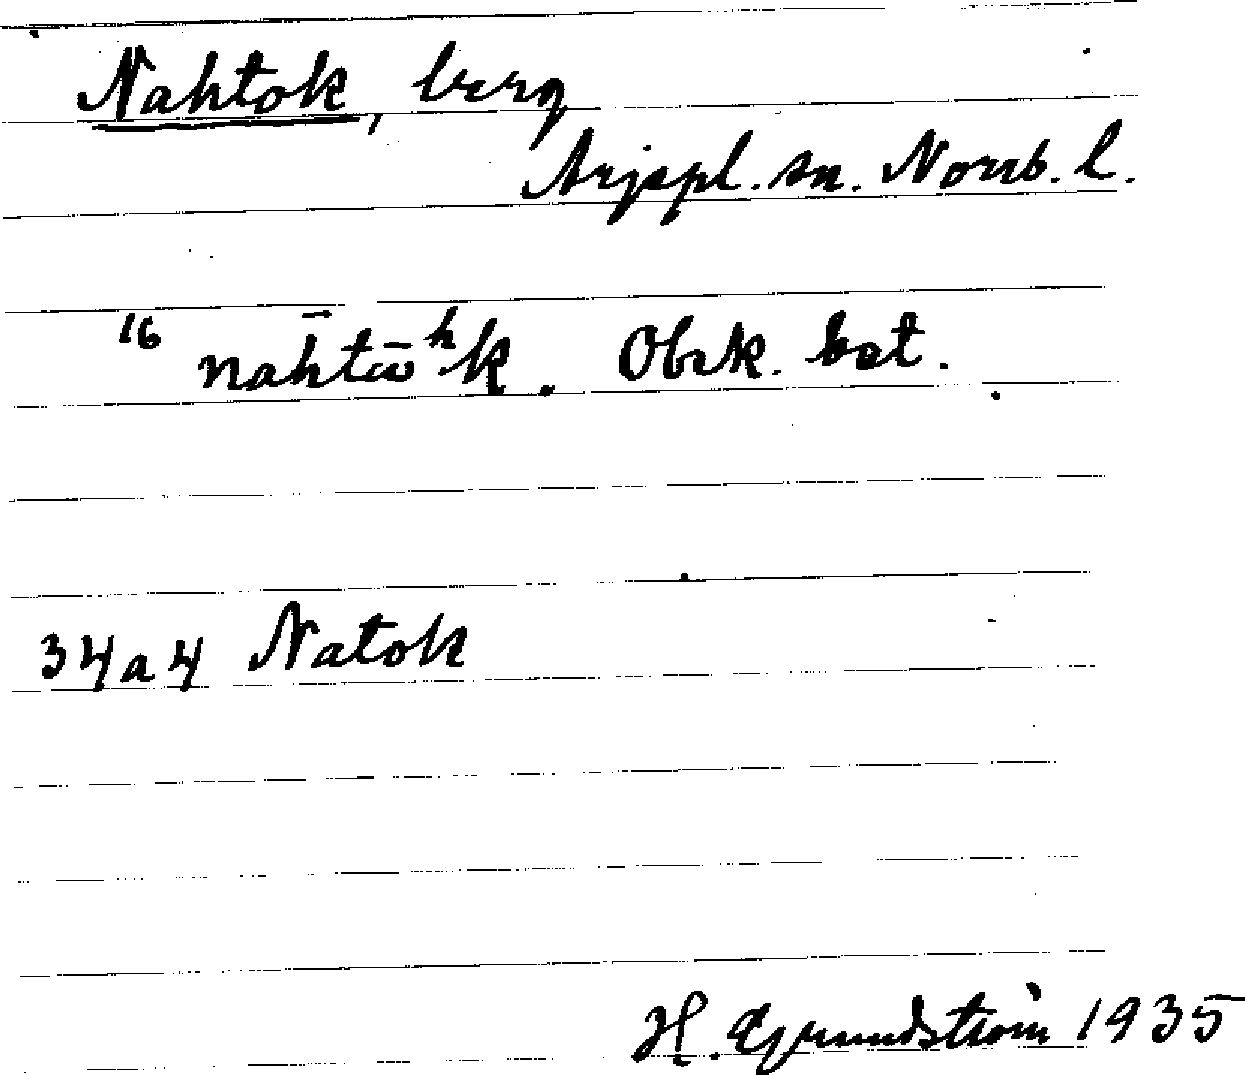 Nahtok, berg
Arjepl. sn. Norrb. l.
16 nahtω̄ʰk. Obek. bet.
34a4 Natok
H. Grundström 1935